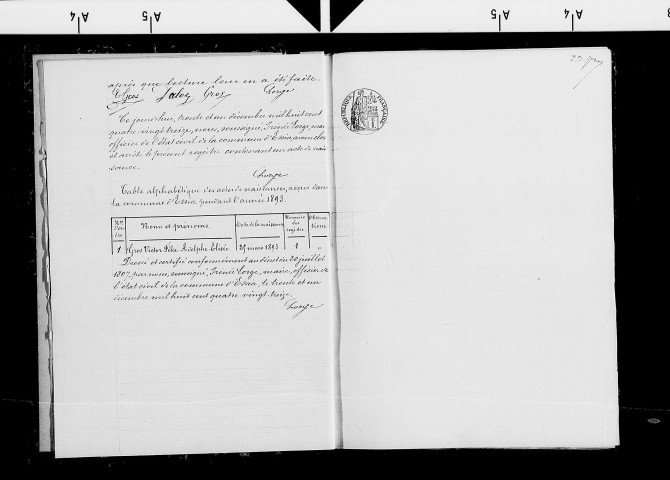 après que lecture leur en a été faite.
Gros Gros Lorge
Ce jourd'hui, trente et un décembre mil huit cent
quatre vingt treize, nous, soussigné, Irénée Lorge, maire
officier de l'état civil de la commune d'Essia, avons clos
et arrêté le présent registre contenant un acte de nais
sance.
Lorge
Table alphabétique des actes de naissances, reçus dans
la commune d'Essia pendant l'année 1893.
Nos d'or dre Noms et prénoms Date de la naissance Numéros des registre Observa tions
1 Gros Victor Félix Adolphe Elisée 25 mars 1893 1 "
Dressé et certifié conformément au décret du 20 juillet
1807, par nous, soussigné, Irénée Lorge, maire, officier de
l'état civil de la commune d'Essia, le trente et un
décembre mil huit cent quatre vingt treize.
Lorge
RÉPUBLIQUE FRANÇAISE
A4
A5
A5
A4